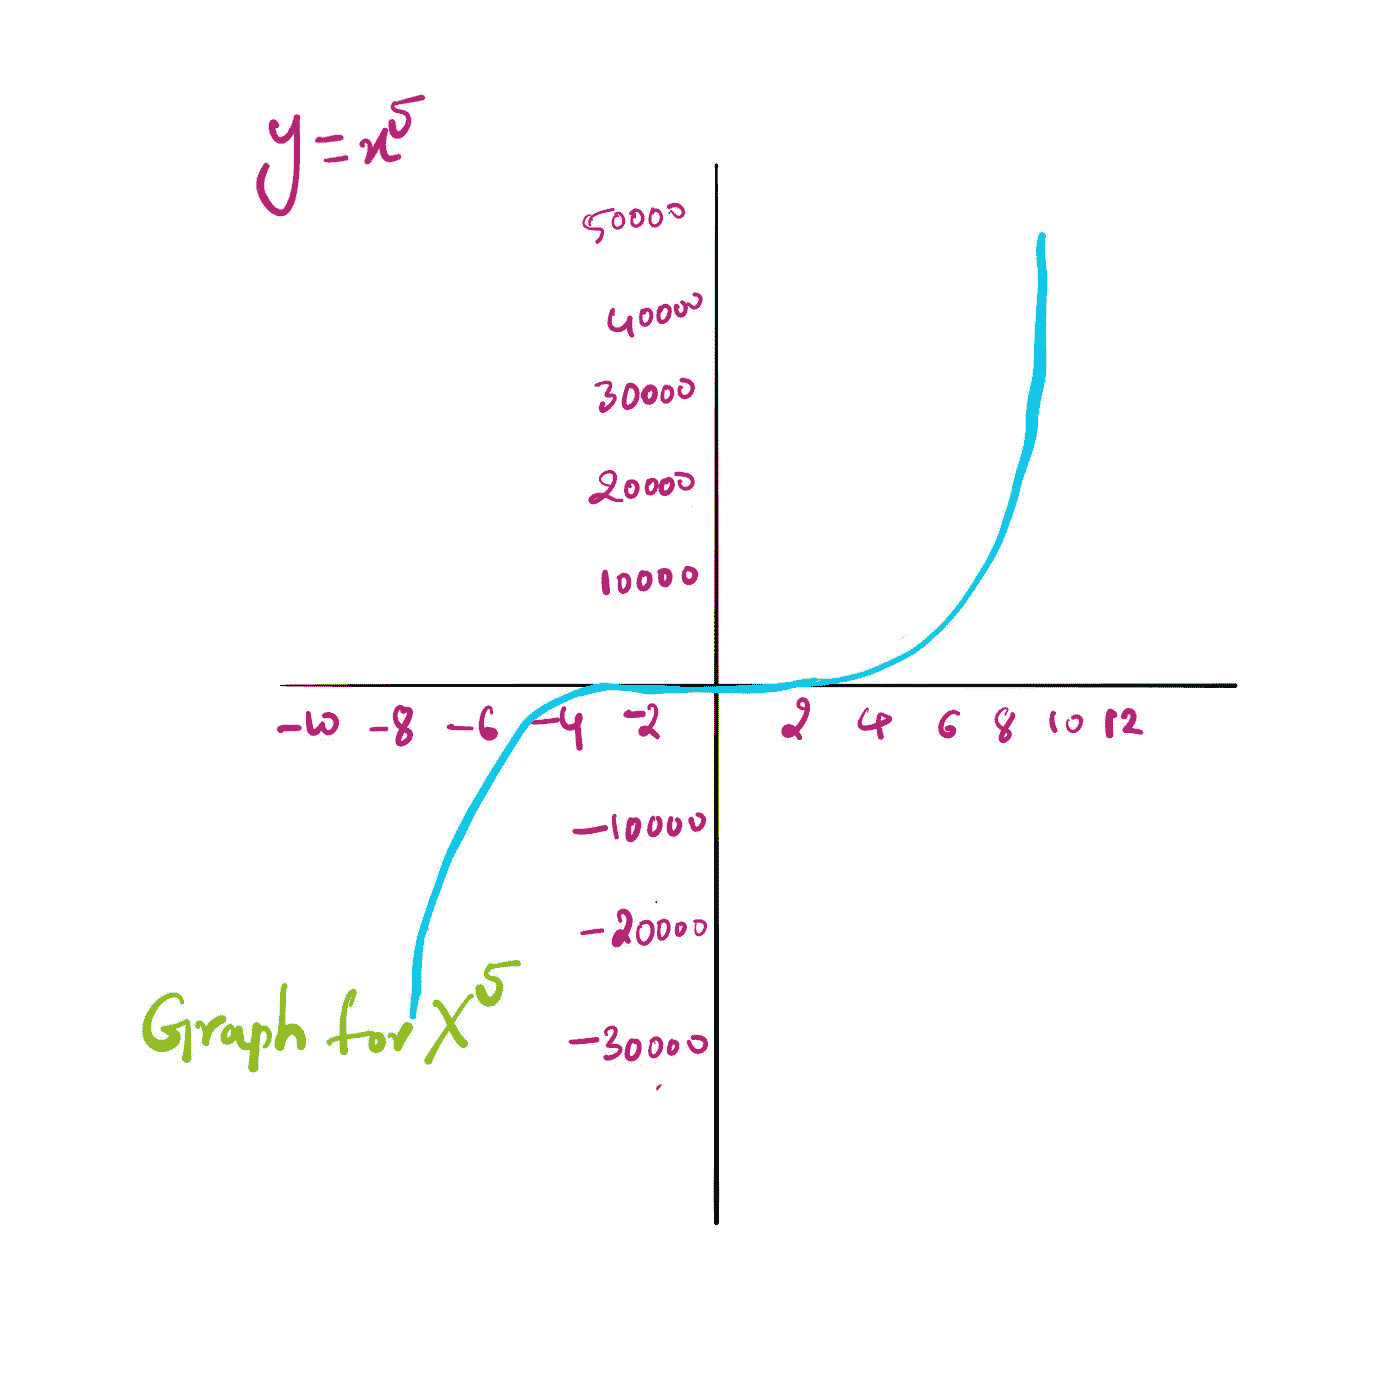 y=x⁵
50000
40000
30000
20000
10000
-10 -8 -6 -4 -2 2 4 6 8 10 12
-10000
-20000
-30000
Graph for X⁵